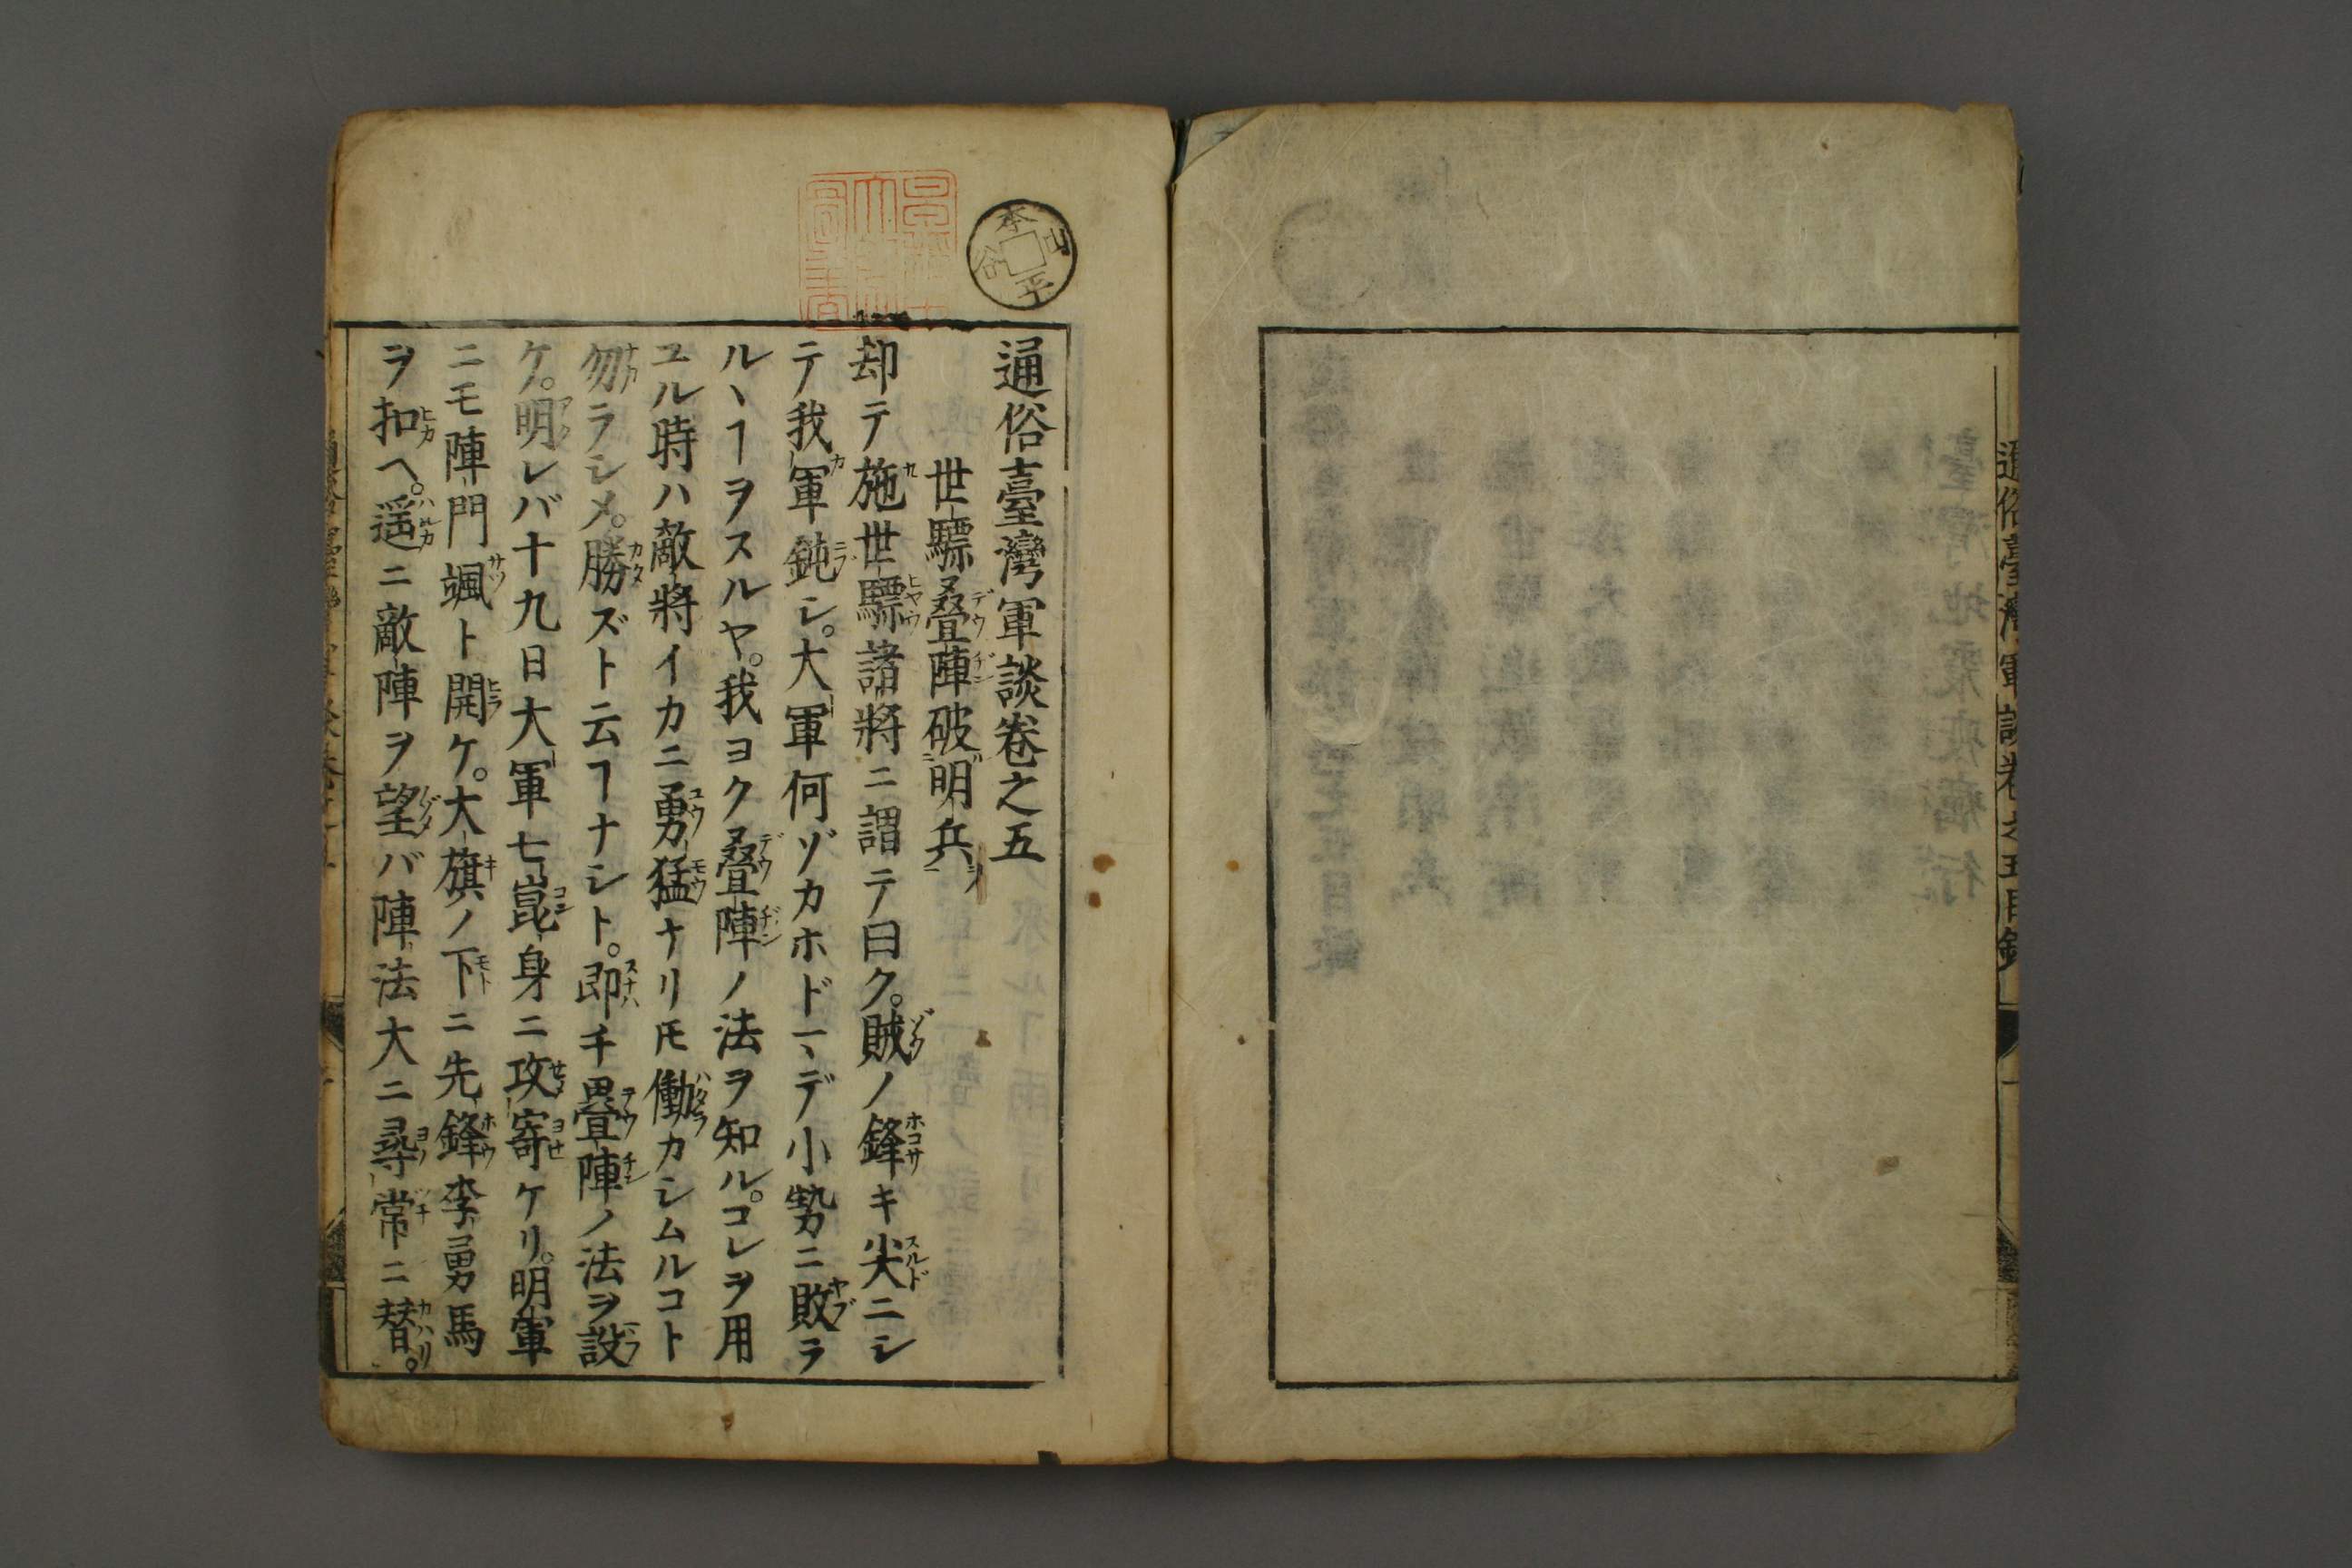 通俗臺灣軍談卷之五目錄
一
本山平谷
通俗臺灣軍談卷之五
世驃疊陣破明兵
却テ施世驃諸將ニ謂テ曰ク。賊ノ鋒キ尖ニシ
テ我軍鈍シ。大軍何ゾカホドヽデ小勢ニ敗ラ
ルヽヿヲスルヤ。我ヨク疊陣ノ法ヲ知ル。コレヲ用
ユル時ハ敵將イカニ勇猛ナリ𪜈働カシムルコト
勿ラシメ。勝ズト云ヿナシト。即チ疊陣ノ法ヲ設
ケ。明レバ十九日大軍七崑身ニ攻寄ケリ。明軍
ニモ陣門颯ト開ケ。大旗ノ下ニ先鋒李勇馬
ヲ扣ヘ。遥ニ敵陣ヲ望バ陣法大ニ尋常ニ替。